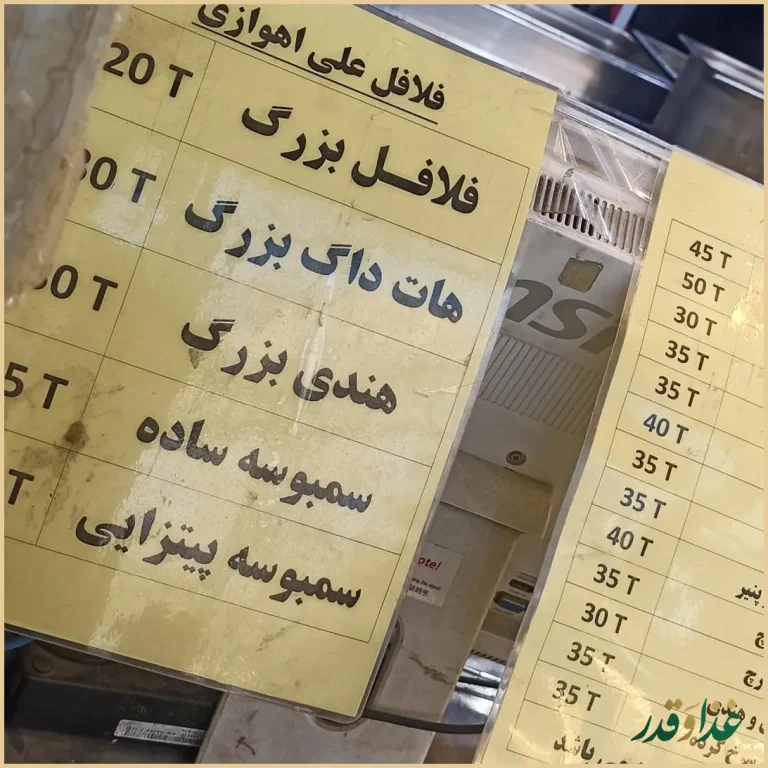 فلافل علی اهوازی
فلافل بزرگ 20 T
هات داگ بزرگ 0 T
هندی بزرگ 0 T
سمبوسه ساده 5 T
سمبوسه پیتزایی T
45 T
50 T
30 T
35 T
35 T
40 T
35 T
35 T
40 T
پنیر 35 T
30 T
35 T
و هندی 35 T
باشد
ote!
غذا و قدر